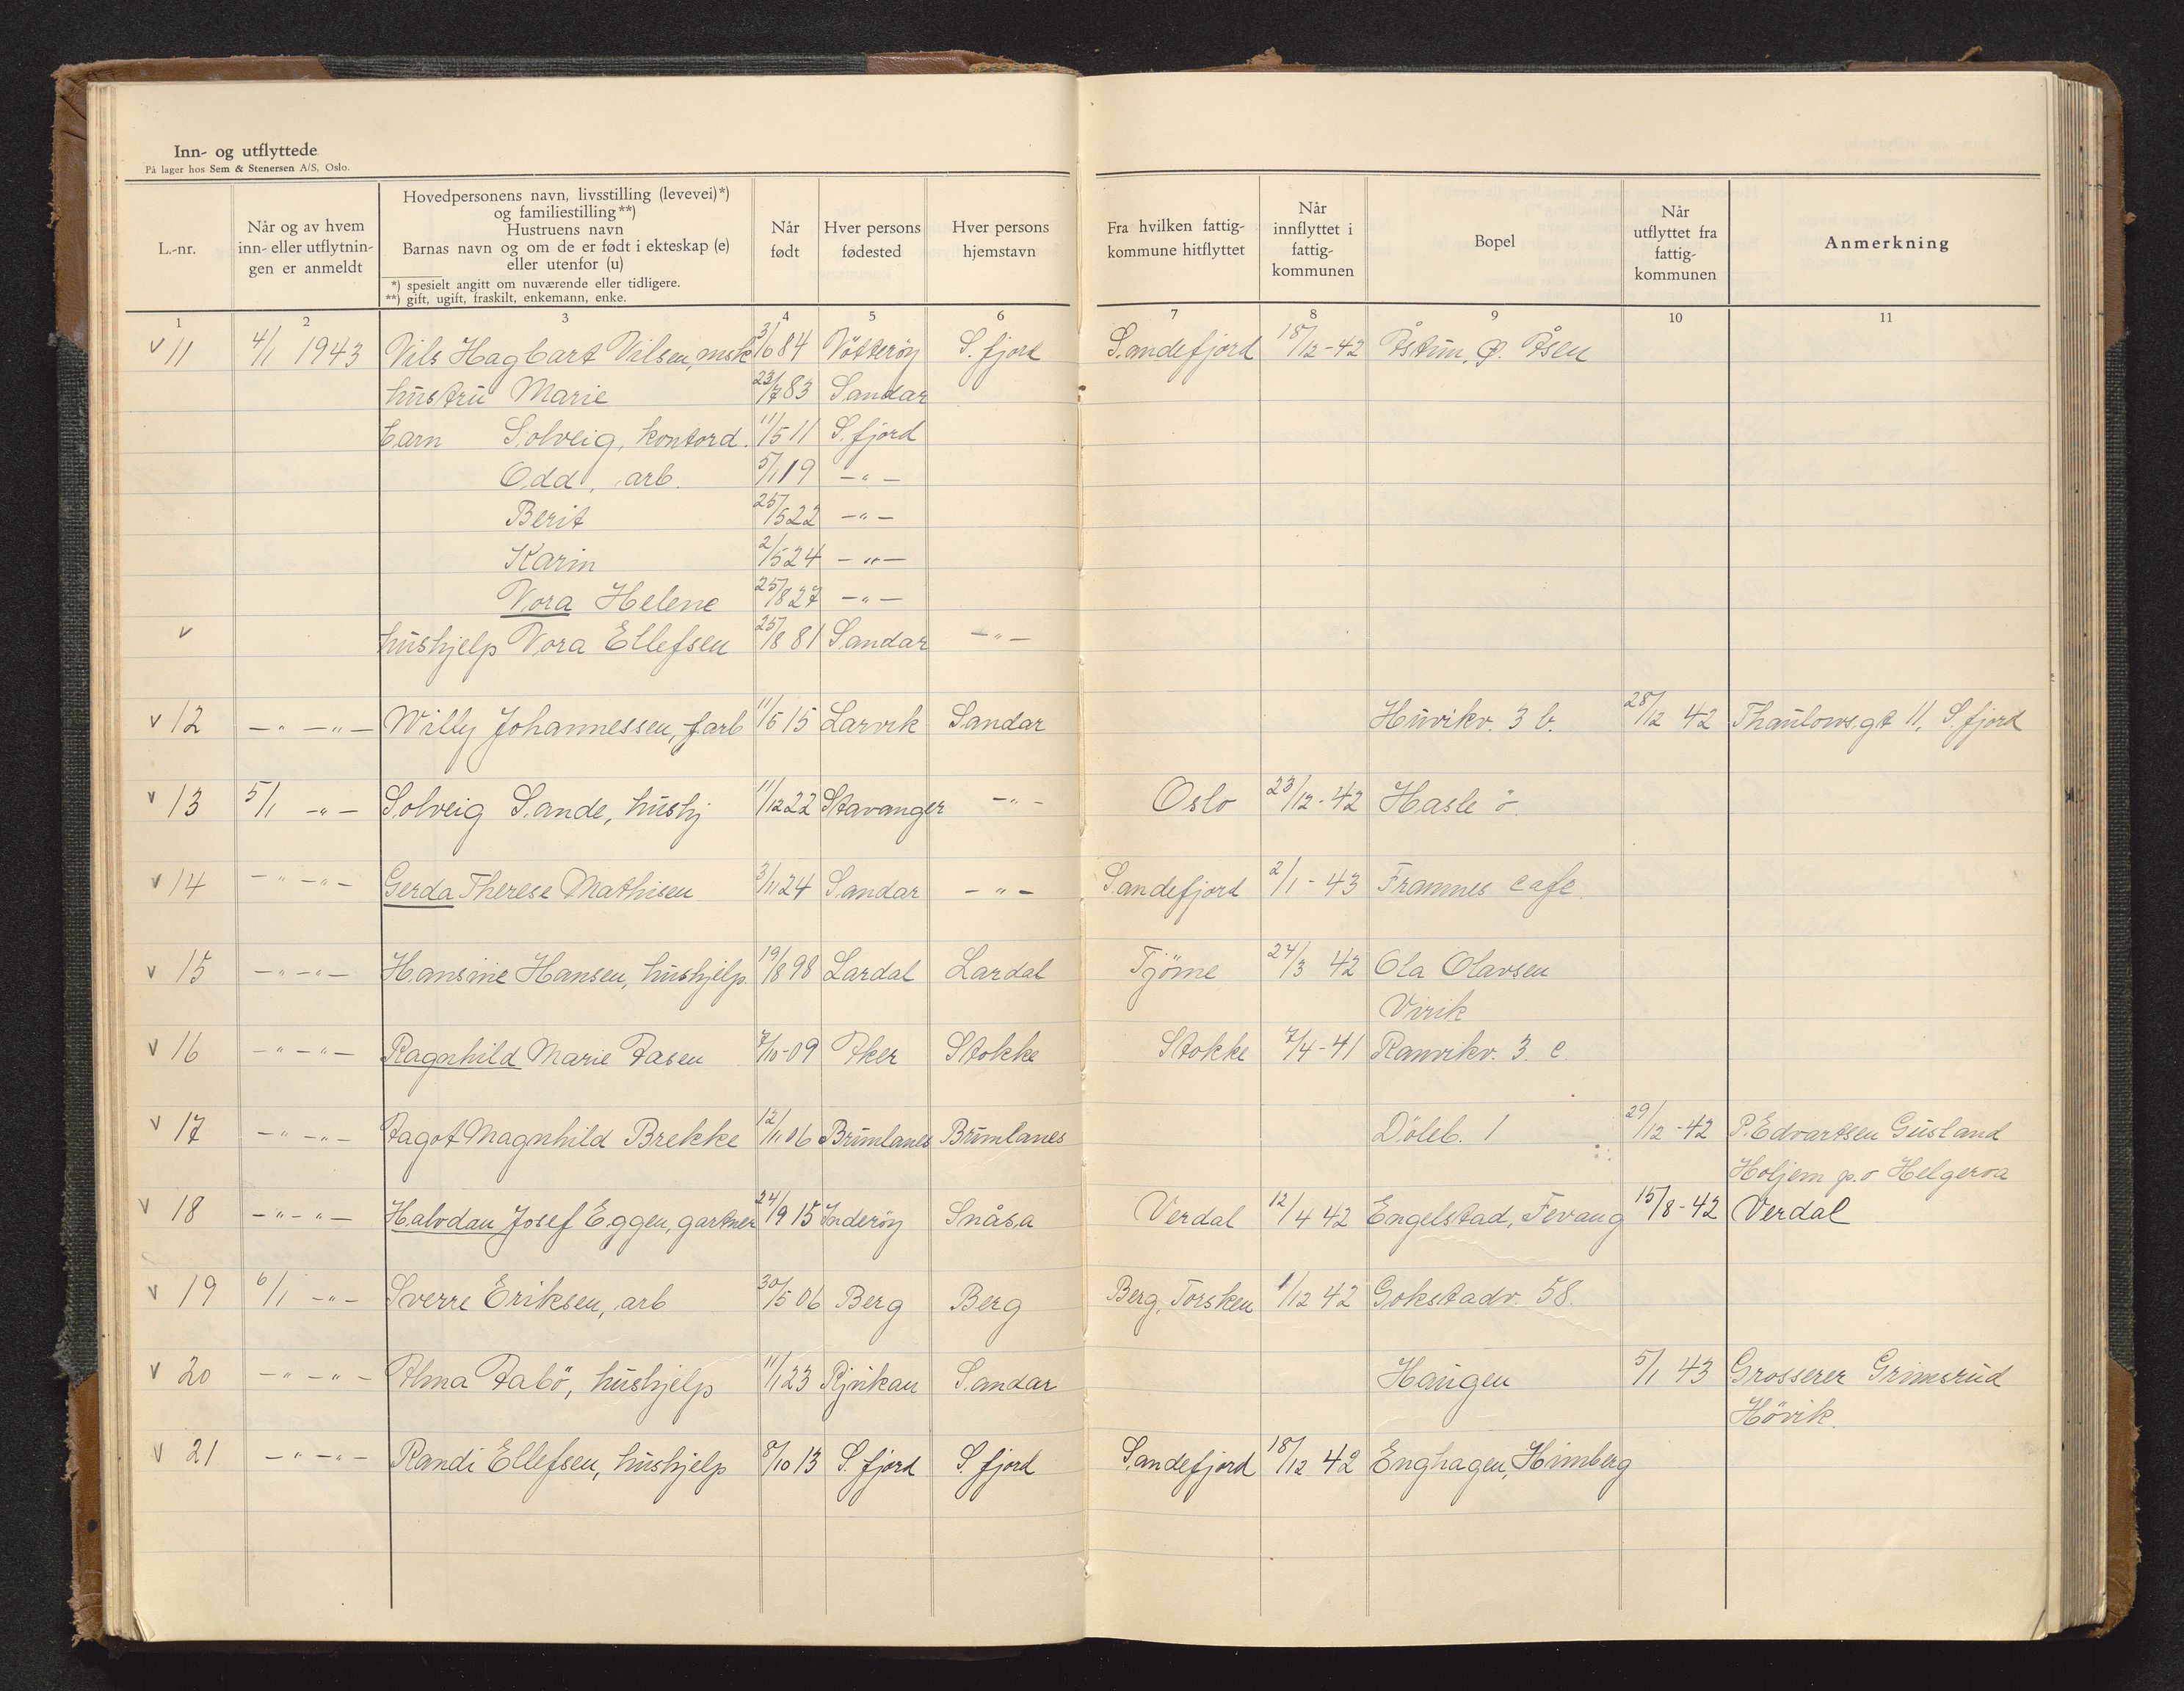 Inn- og utflyttede
På lager hos Sem & Stenersen A/S, Oslo.
L.-nr.
Når og av hvem inn- eller utflytnin- gen er anmeldt
Hovedpersonens navn, livsstilling (levevei)*)
og familiestilling**)
Hustruens navn
Barnas navn og om de er født i ekteskap (e)
eller utenfor (u)
*) spesielt angitt om nuværende eller tidligere.
**) gift, ugift, fraskilt, enkemann, enke.
Når født
Hver persons fødested
Hver persons hjemstavn
Fra hvilken fattig- kommune hitflyttet
Når innflyttet i fattig- kommunen
Bopel
Når utflyttet fra fattig- kommunen
Anmerkning
1 2 3 4 5 6 7 8 9 10 11
v 11 4/1 1943 Nils Hagbart Nilsen, msk 3/6 84 Nötteröy S. fjord Sandefjord 18/12-42 Åstun, Ø. Åsen
hustru Marie 23/7 83 Sandar
barn Solveig, kontord. 11/5 11 S. fjord
Odd, arb. 5/1 19 -"-
Berit 25/5 22 -"-
Karin 2/5 24 -"-
Nora Helene 25/8 27 -"-
v hushjelp Nora Ellefsen 25/8 81 Sandar -"-
v 12 -"- -"- Willy Johannessen, f.arb 11/5 15 Larvik Sandar Huvikv. 3 b. 28/12 42 Thaulowsgt 11, S. fjord
v 13 5/1 -"- Solveig Sande, hushj 11/12 22 Stavanger -"- Oslo 23/12-42 Hasle ö.
v 14 -"- -"- Gerda Therese Mathisen 3/11 24 Sandar -"- Sandefjord 2/1-43 Framnes cafe
v 15 -"- -"- Hansine Hansen, hushjelp. 19/8 98 Lardal Lardal Tjöme 24/3 42 Ola Olavsen
Virik
v 16 -"- -"- Ragnhild Marie Aasen 7/10-09 Aker Stokke Stokke 7/4-41 Ranvikv. 3. c
v 17 -"- -"- Aagot Magnhild Brekke 12/11 06 Brunlanes Brunlanes Döleb. 1 29/12-42 P. Edvartsen Gusland
Holjem p.o Helgeroa
v 18 -"- -"- Halvdan Josef Eggen, gartner 24/9 15 Inderöy Snåsa Verdal 12/4 42 Engelstad, Fevang 15/8-42 Verdal
v 19 6/1 -"- Sverre Eriksen, arb 30/5 06 Berg Berg Berg, Torsken 1/12 42 Gokstadv. 58.
v 20 -"- -"- Alma Aabö, hushjelp 11/1 23 Rjukan Sandar Haugen 5/1 43 Grosserer Grimsrud
Hövik.
v 21 -"- -"- Randi Ellefsen, hushjelp 8/10 13 S. fjord S. fjord Sandefjord 18/12 42 Enghagen, Himberg